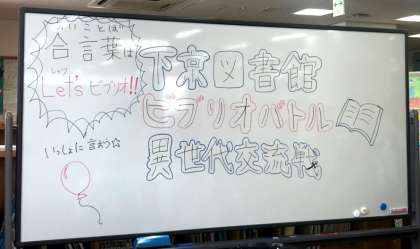 あいことば
合言葉は
レッツ
Let's ビブリオ!!
いっしょに言おう☆
下京図書館
ビブリオバトル
異世代交流戦